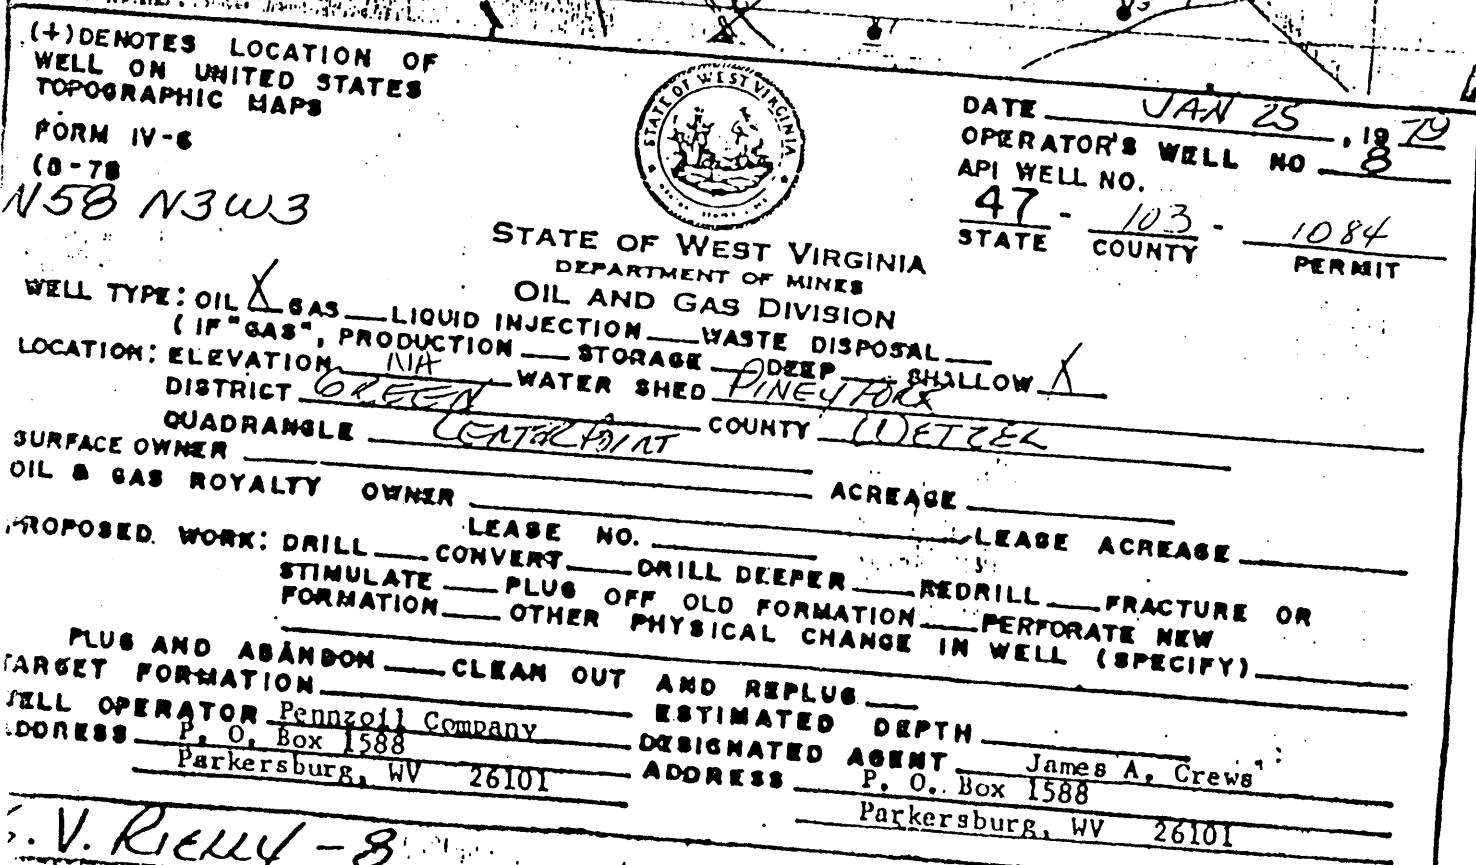 (+) DENOTES LOCATION OF
WELL ON UNITED STATES
TOPOGRAPHIC MAPS
FORM IV-6
(8-78
N58 N3W3
STATE OF WEST VIRGINIA
DATE JAN 25, 1979
OPERATOR'S WELL NO 8
API WELL NO.
47 - 103 - 1084
STATE COUNTY PERMIT
STATE OF WEST VIRGINIA
DEPARTMENT OF MINES
OIL AND GAS DIVISION
WELL TYPE: OIL X GAS ___ LIQUID INJECTION ___ WASTE DISPOSAL ___
(IF "GAS", PRODUCTION ___ STORAGE ___ DEEP ___ SHALLOW X
LOCATION: ELEVATION NA WATER SHED PINEY FORK
DISTRICT GREEN COUNTY WETZEL
QUADRANGLE CENTER POINT
SURFACE OWNER ___ ACREAGE ___
OIL & GAS ROYALTY OWNER ___ LEASE ACREAGE ___
LEASE NO. ___
PROPOSED WORK: DRILL ___ CONVERT ___ DRILL DEEPER ___ REDRILL ___ FRACTURE OR
STIMULATE ___ PLUG OFF OLD FORMATION ___ PERFORATE NEW
FORMATION ___ OTHER PHYSICAL CHANGE IN WELL (SPECIFY) ___
PLUG AND ABANDON ___ CLEAN OUT AND REPLUG ___
TARGET FORMATION ___ ESTIMATED DEPTH ___
WELL OPERATOR Pennzoil Company DESIGNATED AGENT James A. Crews
ADDRESS P. O. Box 1588 ADDRESS P. O. Box 1588
Parkersburg, WV 26101 Parkersburg, WV 26101
S. V. RIELLY - 8